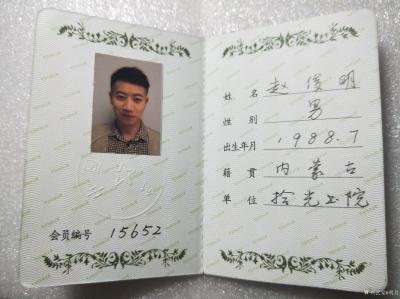 会员编号 15652
姓名 赵俊明
性别 男
出生年月 1988.7
籍贯 内蒙古
单位 拾光书院